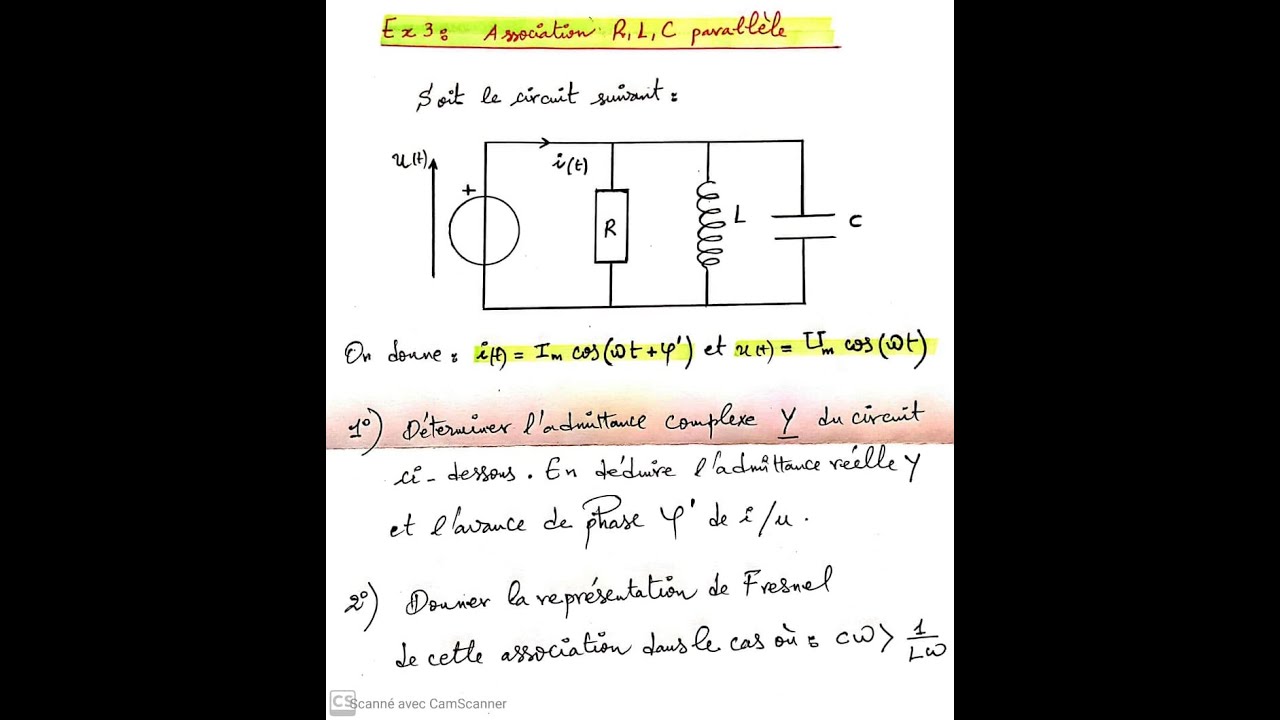 Ex 3: Association R, L, C parallèle
Soit le circuit suivant :
u(t)
+
i(t)
R
L
C
On donne : i(t) = Im cos(ωt + φ') et u(t) = Um cos(ωt)
1°) Déterminer l'admittance complexe Y du circuit
ci-dessous. En déduire l'admittance réelle Y
et l'avance de phase φ' de i/u.
2°) Donner la représentation de Fresnel
de cette association dans le cas où : Cω > 1/Lω
CS Scanné avec CamScanner